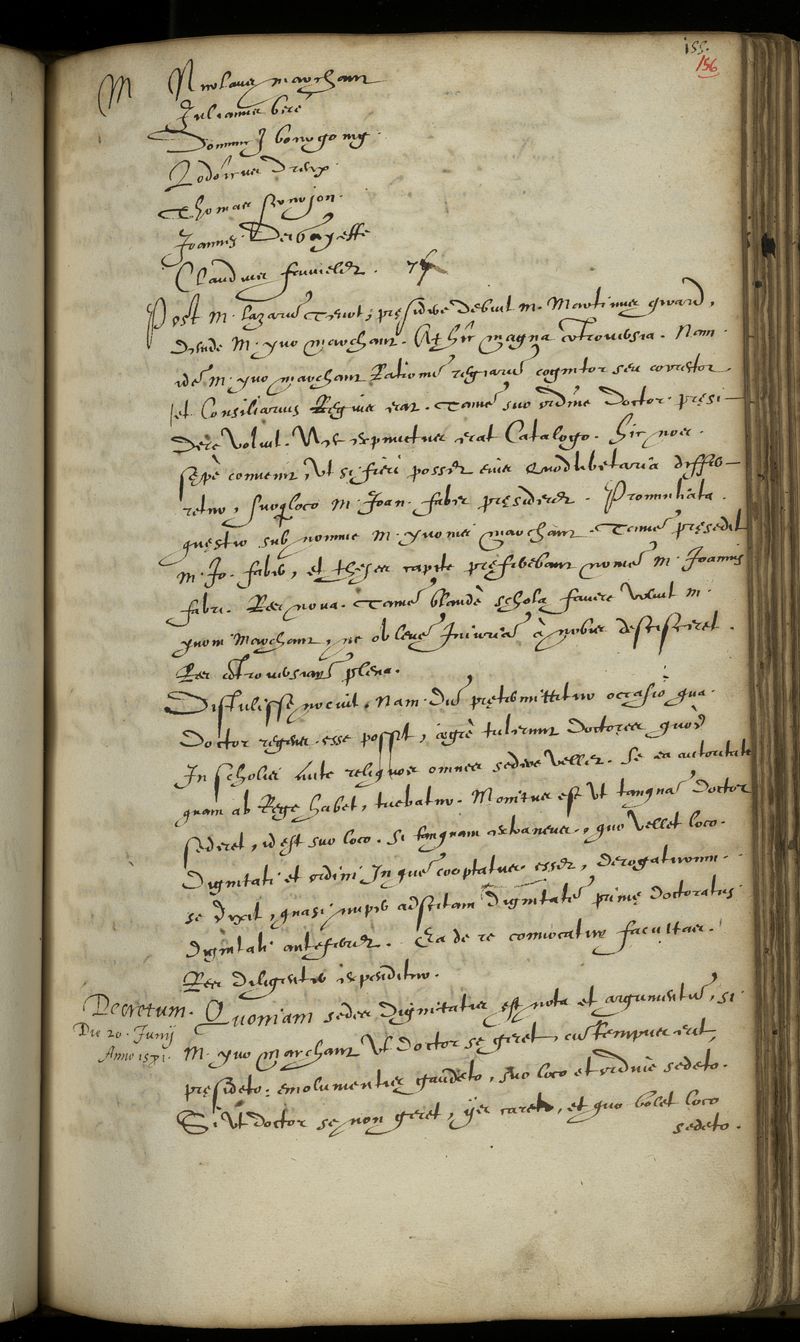 155.
156
M Nicolaus marchant
Julianus
Dominus J
Lodoicus Dreux
Thomas
Joannes
Claudius
Post M. Lazarũ, presidere debuit M. Martinus gward,
deinde M. yvo marchant. At hîc magna cõtroversia. Nam
idẽ M. yvo marchant Rationũ regiarũ cognitor seu corrector
et Consiliarius Regius erat. Tamẽ suo ordine doctor presi-
dere voluit. Nec expunctus erat Catalogo. hîc nos
sępè convenit, Ut si fieri posset eius quodlibetaria differ-
retur, suoq; loco M. Joan. faber pręsideret. Pronuntiata
questio sub nomine M. yvonis marchant. Tamẽ pręsedit
M. Jo. faber, et thesis capite pręfigebant nomẽ M. Joannis
fabri. Res nova. Tamẽ blandè scholę favere voluit M.
yvoni Marchant, ne ob levẽ Iniuriã à nobis descisceret.
Res cõtroversiarũ plena.
Distulisse nocuit. Nam dũ prętermittitur occasio qua
doctor regens esse possit, ęgrè tulerunt doctores quòd
In scholis Ante reliquos omnes sedere vellet. Se ea autoritate
quam ab Rege habet, tuebatur. Monitus est Ut tanquã doctor
sederet, id est suo loco. Si tanquam extraneus, quo vellet loco.
Dignitati et ordini In quẽ cooptatus esset, derogativum
se dixit, quasi nuper adscitam dignitatẽ primę doctoratus
dignitati anteferret. Ea de re convocatur facultas.
Res diligenter expenditur.
Decretum. Quoniam sedes dignitatis est nota et argumentũ, si
Die 20. Junij
Anno 1571.
M. yvo marchant Ut doctor se geret, cũ tempus erit,
pręsideto: emolumentis gaudeto, suo loco et ordine sedeto.
Si Ut doctor se non geret, ijs careto, et quo volet loco
sedeto.